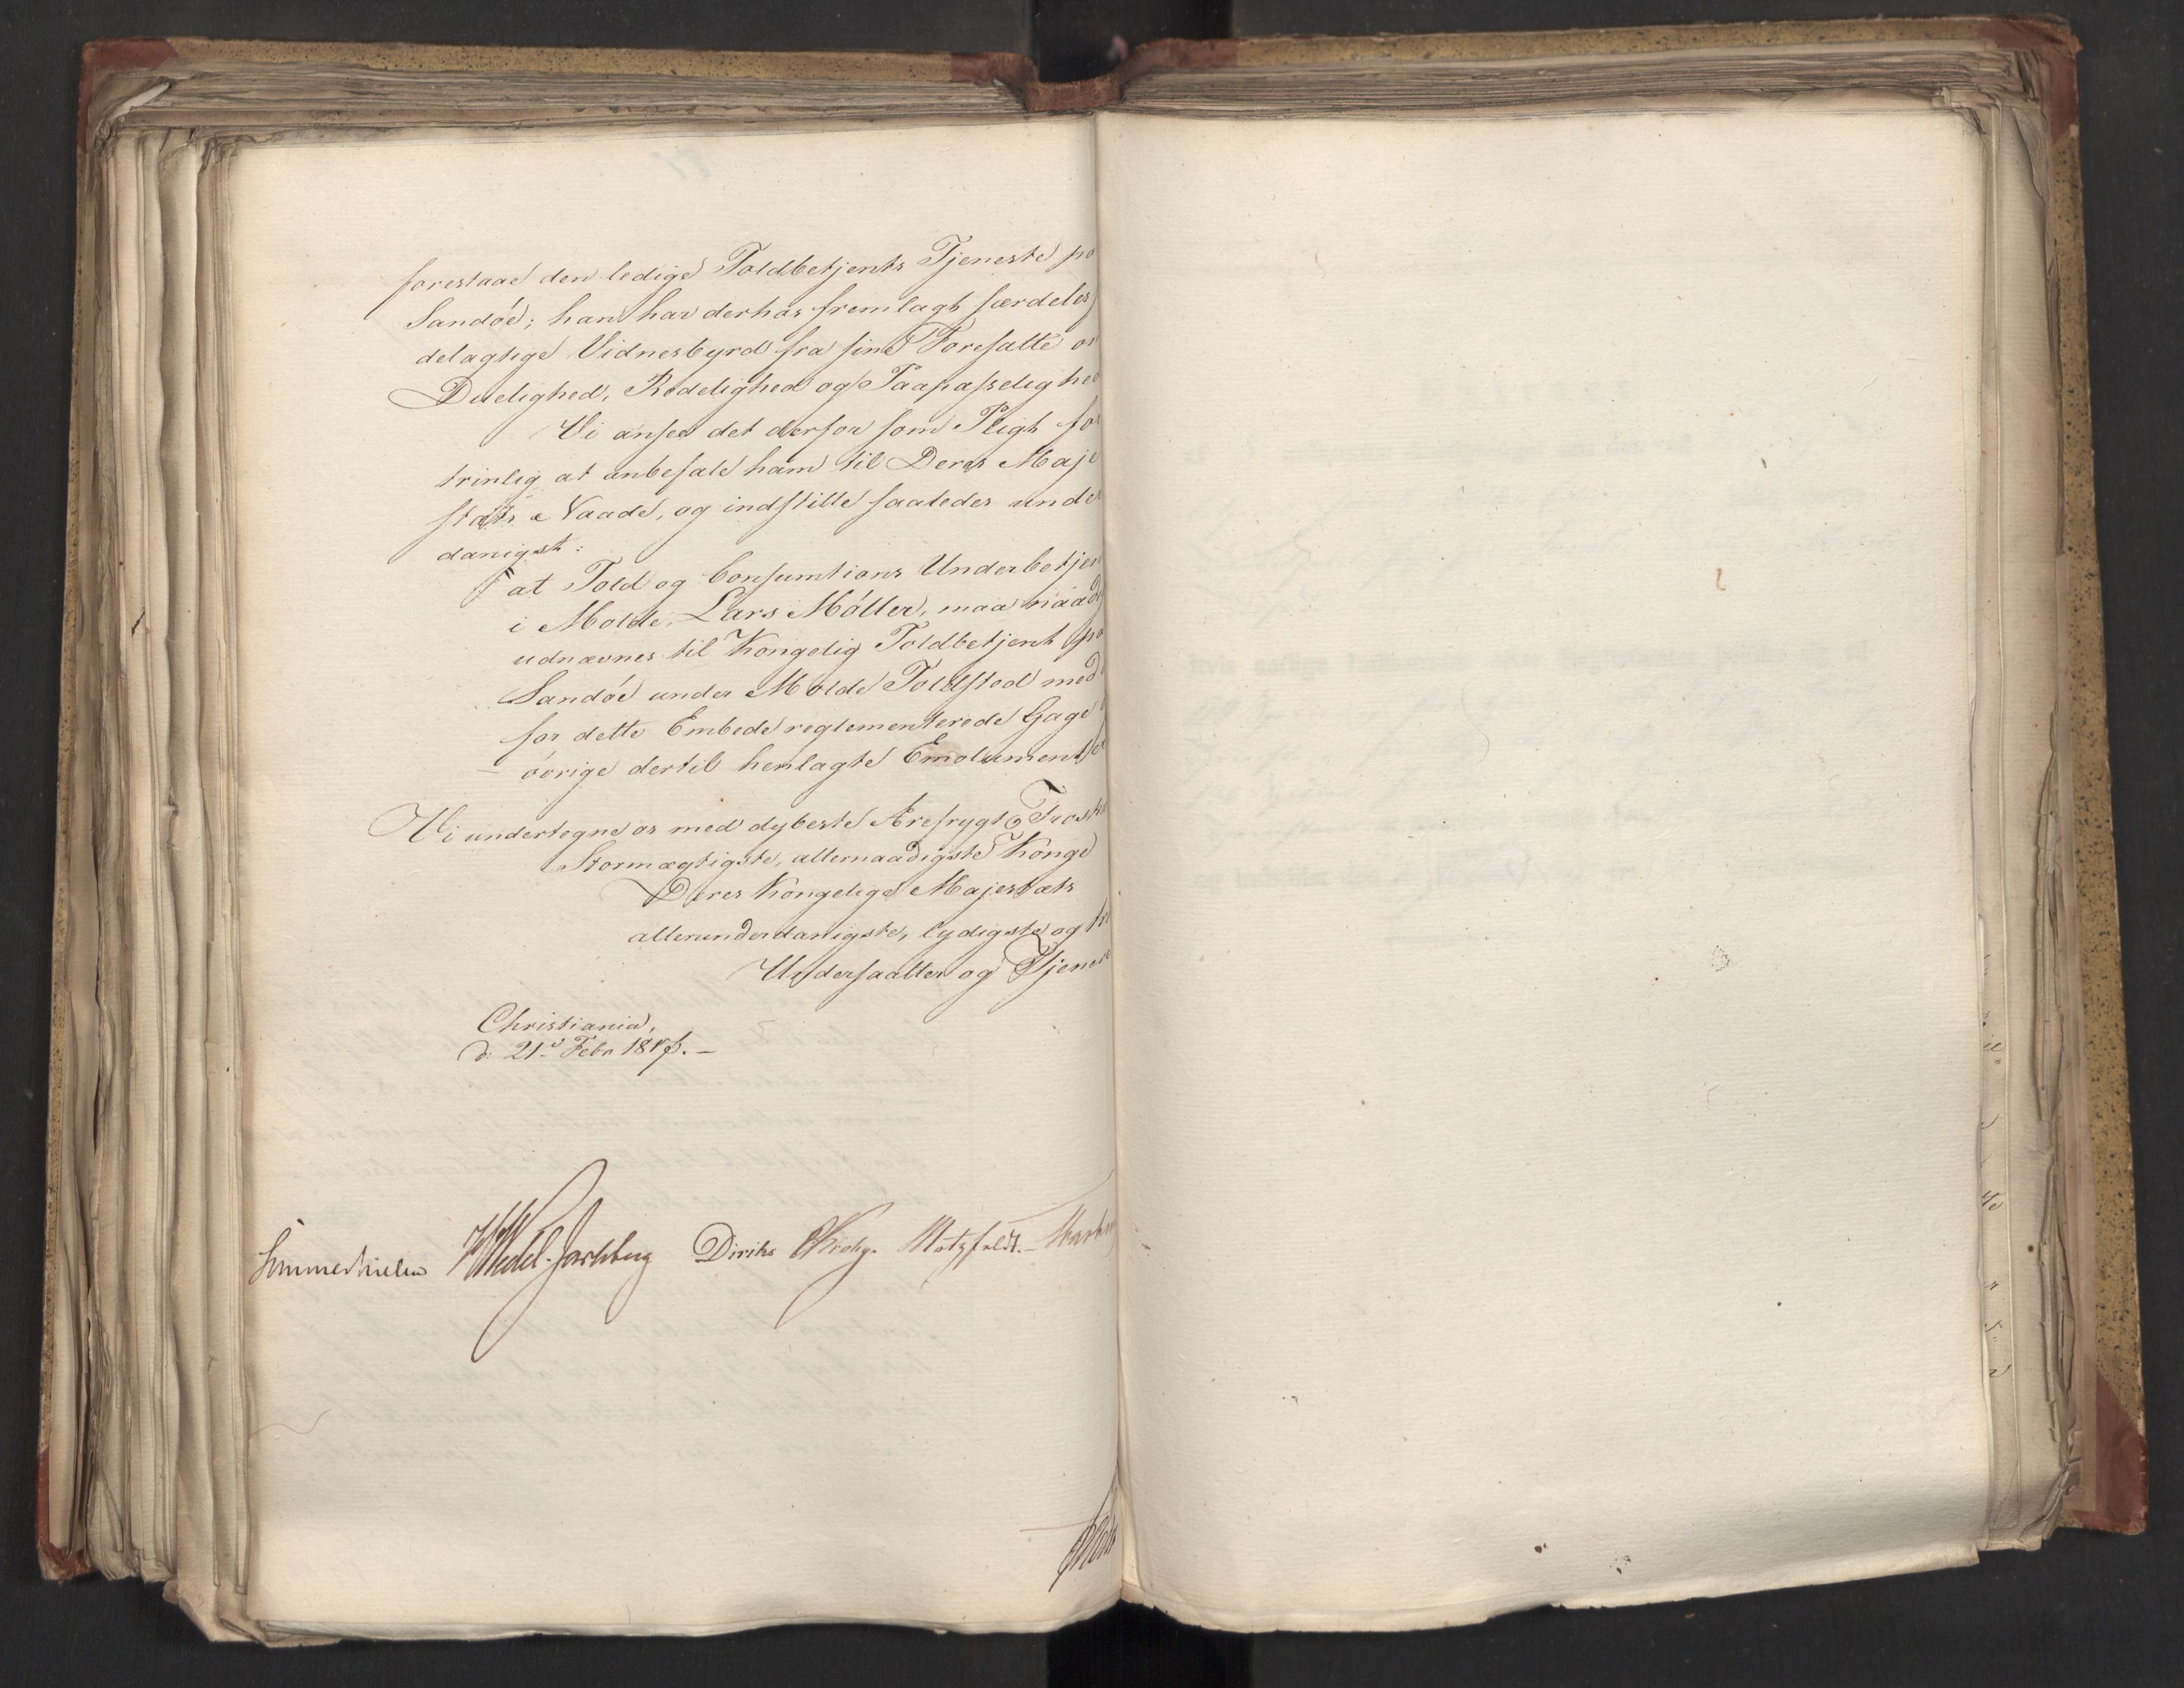 forestaae den ledige Toldbetjents Tjeneste pa
Sandöe; han har derhos fremlagt særdeles
delagtige Vidnesbyrd fra sine Foresatte om
Duelighed, Redelighed og Paapasselighed
Vi ansee det derfor som Pligt for
trinlig at anbefale ham til Deres Maje
stæts Naade, og indstille saaledes under
danigst:
at Told og Consumtions Underbetjen
i Molde, Lars Möller, maa naad
udnævnes til Kongelig Toldbetjent pa
Sandöe under Molde Toldsted med
for dette Embede reglementerede Gage
övrige dertil henlagte Emolumenter
Vi undertegne os med dybeste Ærefrygt og Troska
Stormægtigste, allernaadigste Konge
Deres Kongelige Majestæts
allerunderdanigste, lydigste og tr
Undersaatter og Tjenere
Christiania,
d: 21.d Febr 1817. —
Sommerhielm Wedel-Jarlsberg Diriks Krohg. Motzfeldt.